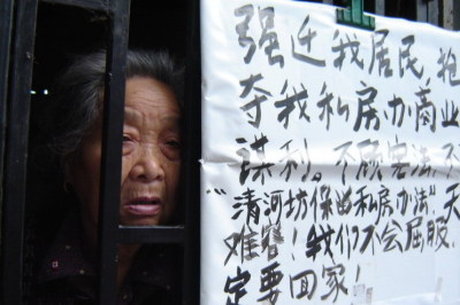 强迁我居民,抢
夺我私房办商业
谋利。不顾宪法,
"清河坊保留私房办法"天
难容!我们不会屈服
定要回家!